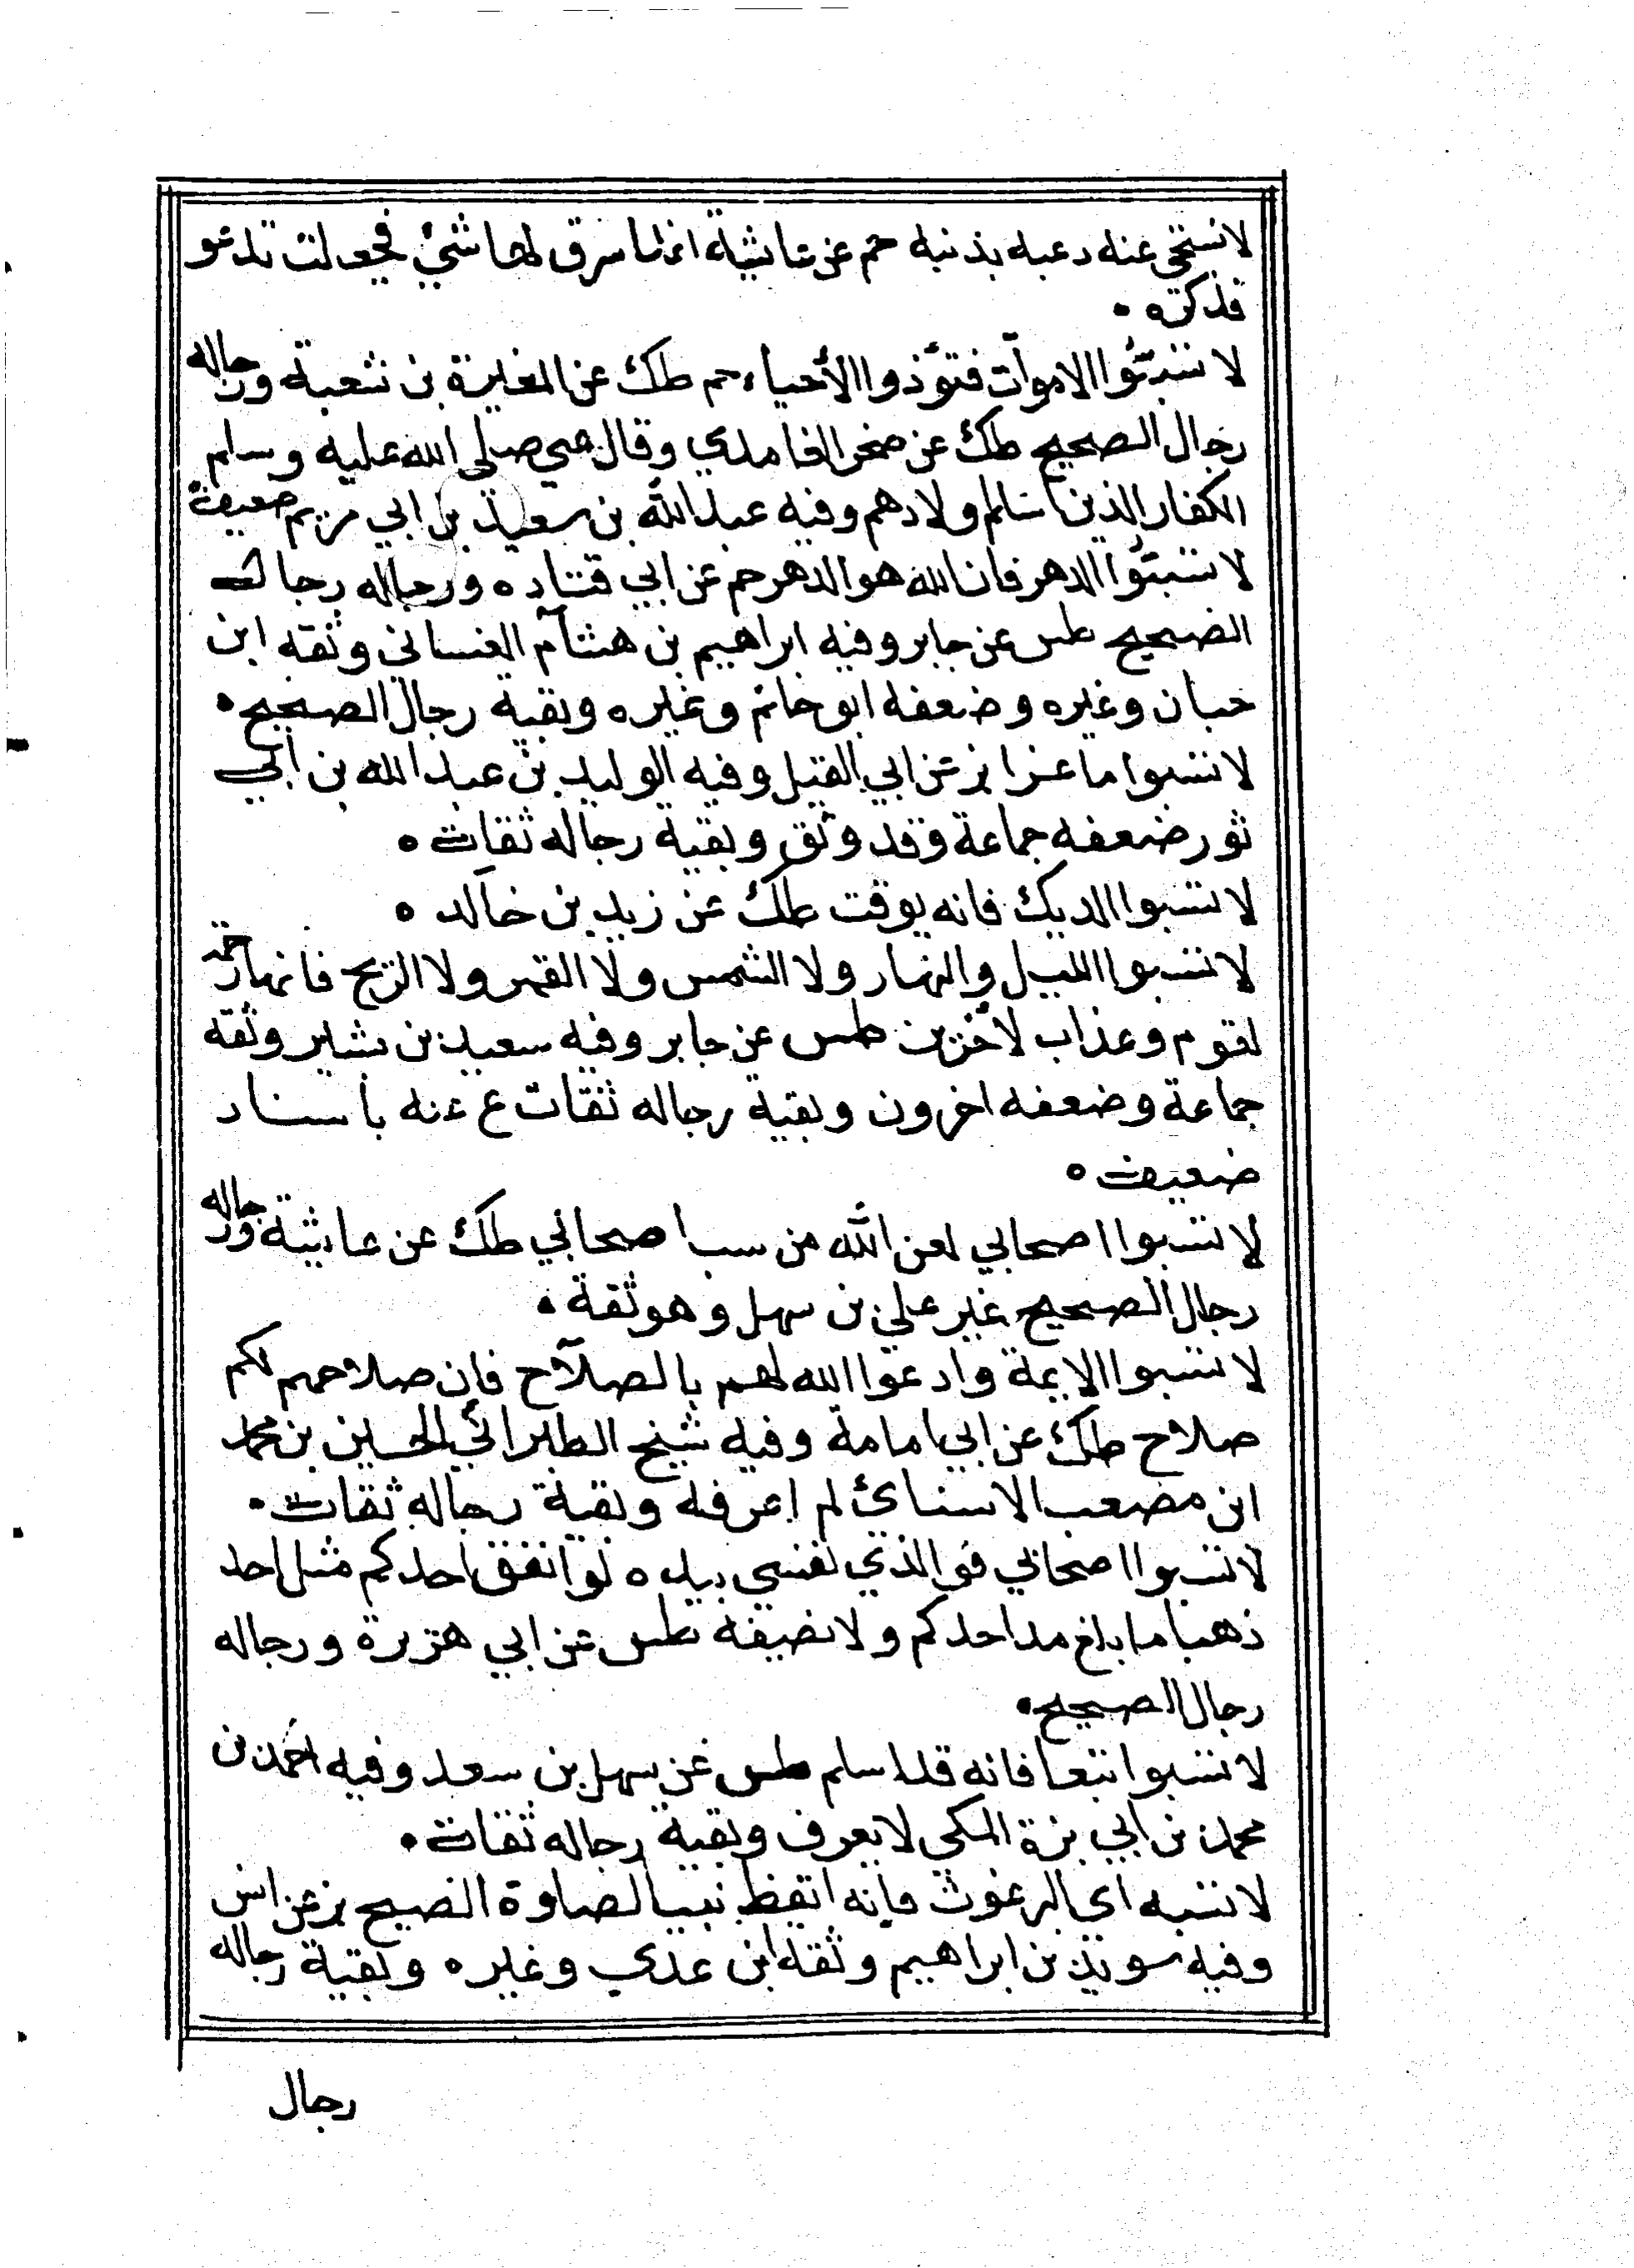 لا تسبخي عنه دعيه بذنبه حم عن عائشة انها سرق لها شئ فجعلت تدعو
فذكره •
لا تسبوا الاموات فتؤذوا الأحياء حم طك عن المغيرة بن شعبة ورجاله
رجال الصحيح طك عن صخر الغامدي وقال صلى الله عليه وسلم
الكفار الذين اسلم ولادهم وفيه عبد الله بن سعيد بن ابي مريم ضعيف
لا تسبوا الدهر فان الله هو الدهر حم عن ابي قتاده ورجاله رجال
الصحيح طس عن جابر وفيه ابراهيم بن هشام الغساني وثقه ابن
حبان وغيره وضعفه ابو حاتم وغيره وبقية رجال الصحيح •
لا تسبوا ماعزا بز عن ابي الفيل وفيه الوليد بن عبد الله بن ابي
ثور ضعفه جماعة وقد وثق وبقية رجاله ثقات ه
لا تسبوا الديك فانه يوقت طك عن زيد بن خالد ه
لا تسبوا الليل والنهار ولا الشمس ولا القمر ولا الريح فانها رحمة
لقوم وعذاب لآخرين طس عن جابر وفيه سعيد بن بشير وثقه
جماعة وضعفه اخرون وبقية رجاله ثقات ع عنه بأسناد
ضعيف ه
لا تسبوا اصحابي لعن الله من سب اصحابي طك عن عائشة ورجاله
رجال الصحيح غير علي بن سهل وهو ثقة •
لا تسبوا الايمة وادعوا الله لهم بالصلاح فان صلاحهم لكم
صلاح طك عن ابي امامة وفيه شيخ الطبراني الحسين بن محمد
ابن مصعب الاسنائ لم اعرفه وبقية رجاله ثقات •
لا تسبوا اصحابي فو الذي نفسي بيده لو انفق احدكم مثل احد
ذهبا ما بلغ مد احدكم ولا نصيفه طس عن ابي هريرة ورجاله
رجال الصحيح •
لا تسبوا تبعا فانه قد اسلم طس عن سهل بن سعد وفيه احمد بن
محمد بن ابي بزة المكي لا يعرف وبقية رجاله ثقات •
لا تسبه اي البرغوث فإنه ايقظ نبيا لصلوة الصبح بز عن انس
وفيه سويد بن ابراهيم وثقه ابن عدي وغيره وبقية رجاله
رجال